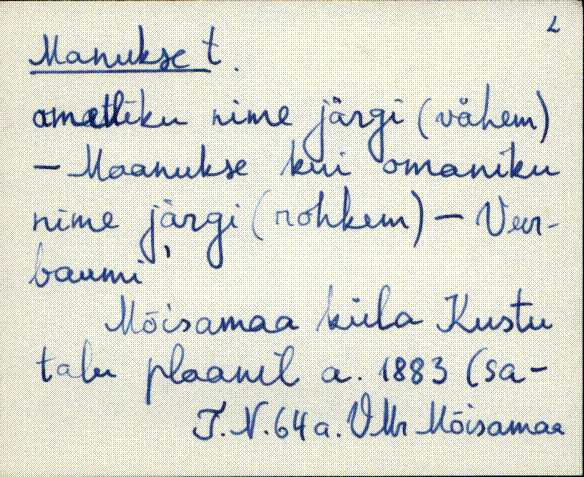 L
Manukse t.
ametliku nime järgi (vähem)
– Maanukse kui omaniku
nime järgi (rohkem) – Veer-
baumi
Mõisamaa küla Kustu
talu plaanil a. 1883 (sa-
T.N. 64 a. VMr Mõisamaa